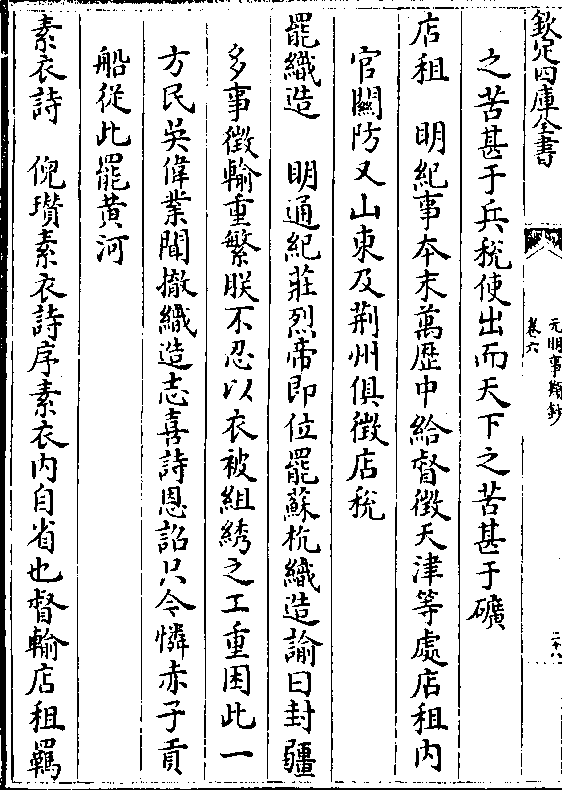 欽定四庫全書
元明事類鈔
卷六
二十八
之苦甚于兵稅使出而天下之苦甚于礦
店租 明紀事本末萬歷中給督徵天津等處店租内
官關防又山東及荆州俱徵店稅
罷織造 明通紀莊烈帝即位罷蘇杭織造諭曰封疆
多事徵輸重繁朕不忍以衣被組綉之工重困此一
方民吳偉業聞撤織造志喜詩恩詔只今憐赤子貢
船從此罷黄河
素衣詩 倪瓚素衣詩序素衣内自省也督輸店租羈